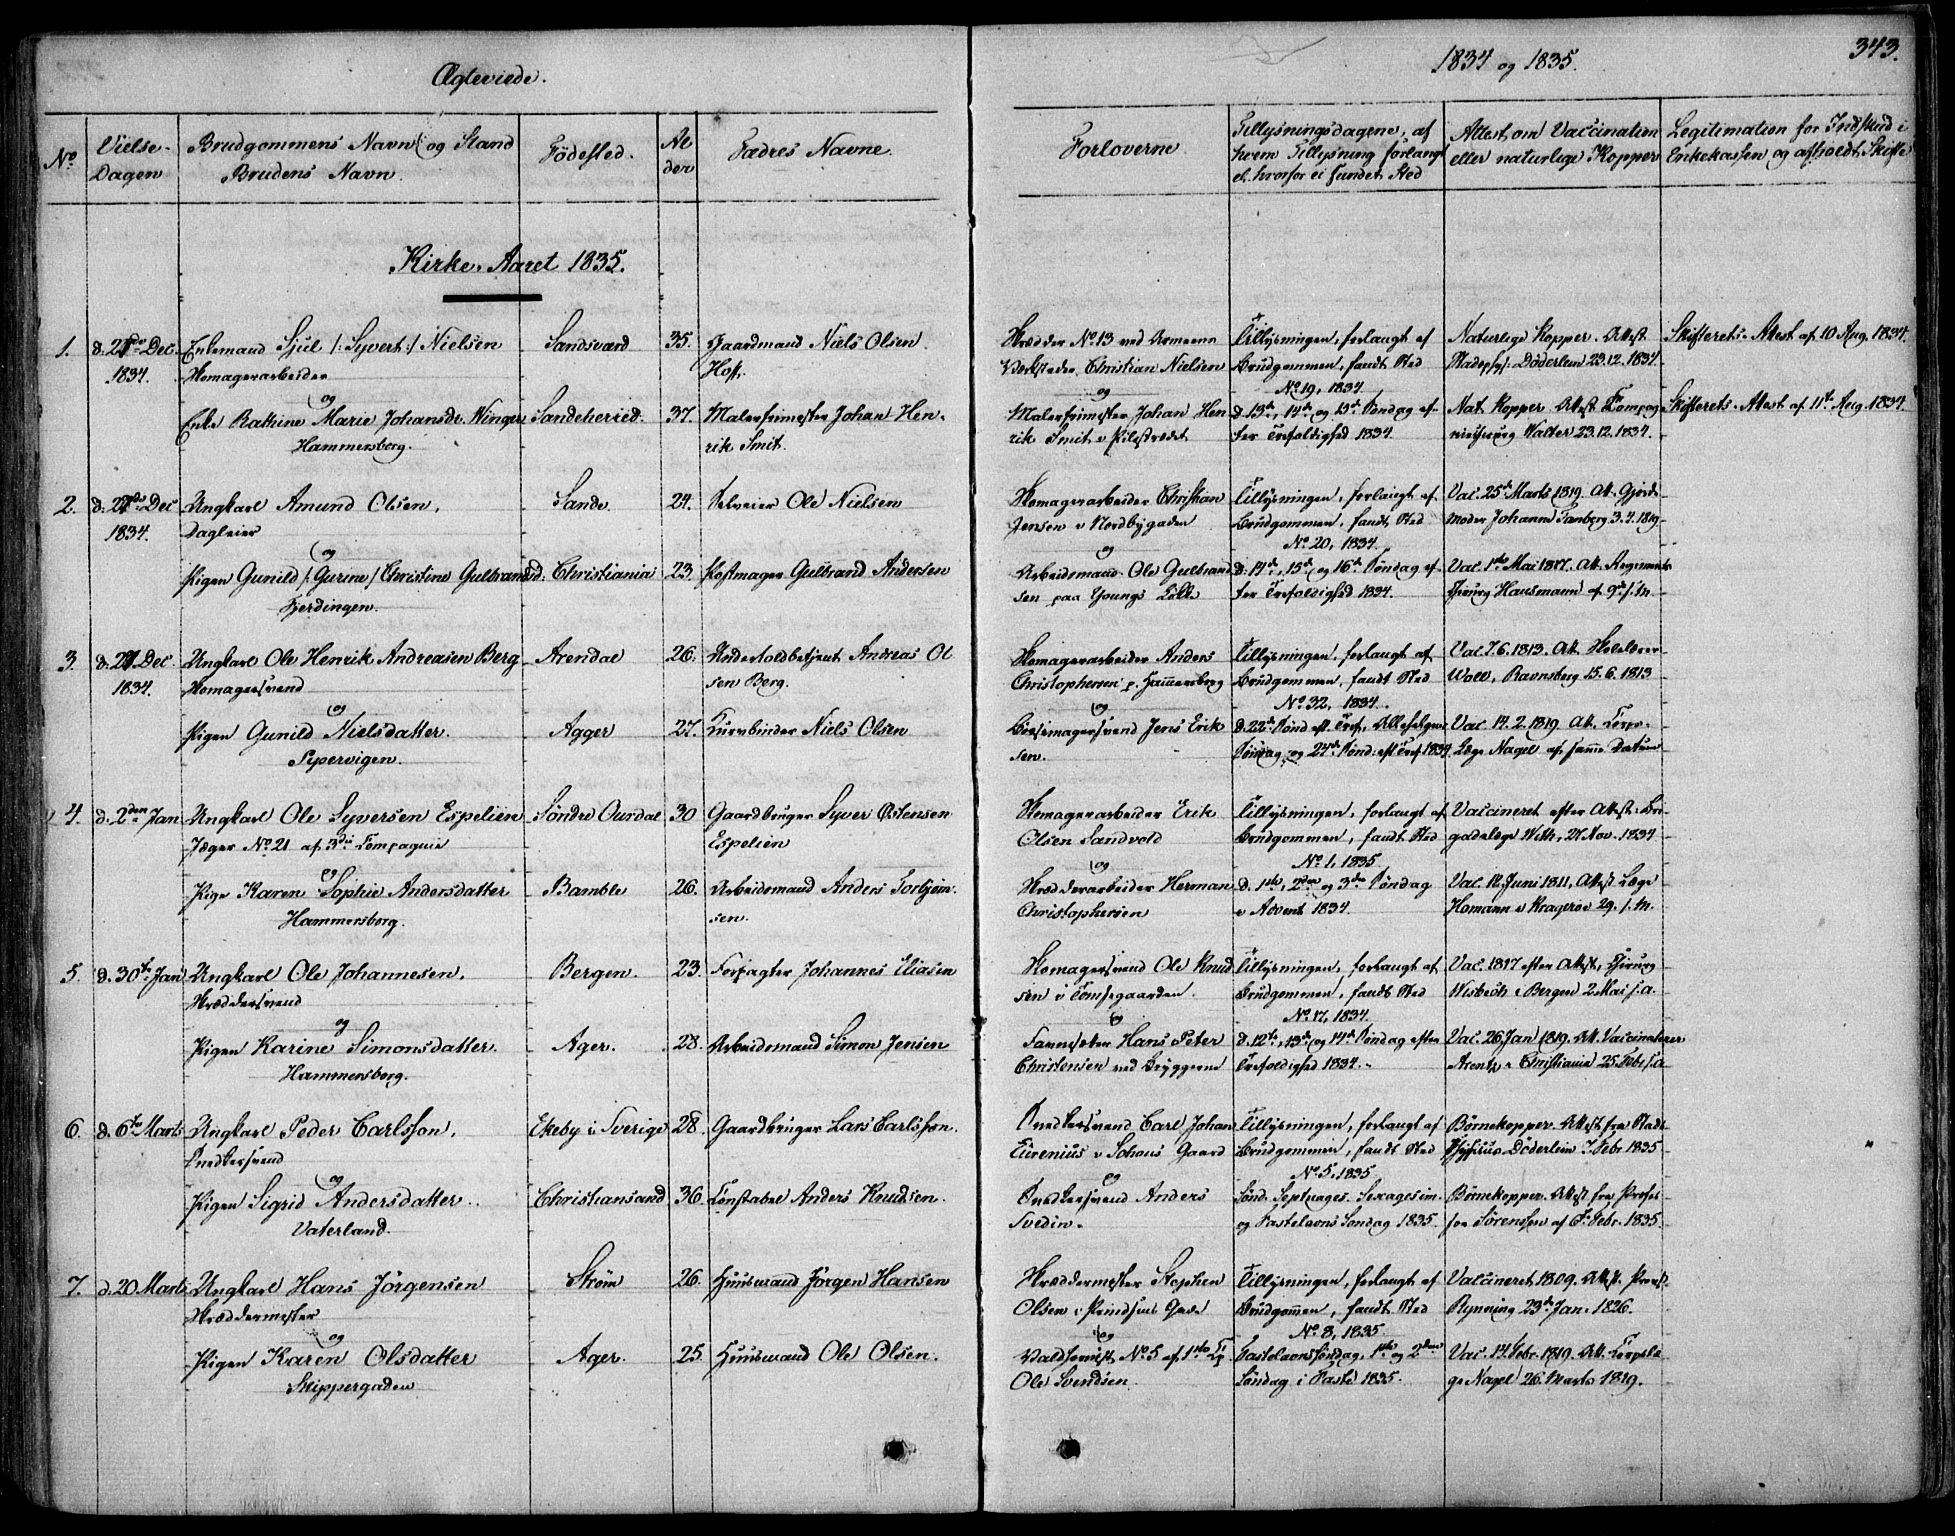 Ægteviede.
1834 og 1835.
343.
No
Vielse-
Dagen
Brudgommens Navn og Stand
Brudens Navn.
Fødested.
Al
der
Fædres Navne.
Forloverne
Tillysningsdagene, af
hvem Tillysning forlangt
el. hvorfor ei fundet Sted
Attest om Vaccination
eller naturlige Kopper
Legitimation for Indskud i
Enkekassen og afholdt Skifte
Kirke-Aaret 1835.
1.
1834.
Enkemand Sjul /: Syvert :/ Nielsen
Skomagerarbeider
Sandsværd
35.
Gaardmand Niels Olsen
Skrædder No 13 ved
Christian Nielsen
Tillysningen, forlangt af
Brudgommen, fandt Sted
No 19, 1834
Naturlige Kopper. Attest
Döderlein 23.12.1834
Skifterets-Attest af 10 Aug. 1834.
og
Enke Marie Johansdr Winger
Hammersborg.
Sandeherred.
37.
Malersvimester Johan Hen-
rik Smit.
og
Johan Hen
rik Smit i Pilestrædet
d. 13de, 14de og 15de Søndag ef-
ter Trefoldighed 1834.
Nat. Kopper Attest Compag-
niechirurg Walter 23.12.1834.
Skifterets-Attest af 11te Aug. 1834
2.
1834.
Ungkarl Amund Olsen,
Dagleier
Sande
24.
Selveier Ole Nielsen
Skomagerarbeider Christian
Jensen i Nordbygaden
Tillysningen, forlangt af
Brudgommen, fandt Sted
No 20, 1834
Vac. 25de Marts 1819. Att. Gjorde-
moder Johanne Tanberg 3.4.1819
og
Pigen Gunild /: Gurine / Christine Gulbrandsd:
Fjerdingen.
Christiania
23.
Gulbrand Andersen
og
Arbeidsmand Ole Gulbrand-
sen paa Youngs Løkke
d. 14de, 15de og 16de Søndag ef-
ter Trefoldighed 1834.
Vac. 1ste Mai 1817. Att. Regiments
Chirurg Hausmann af 9de s. M.
3.
1834.
Ungkarl Ole Henrik Andreasen Berg
Skomagersvend
Arendal
26.
Undertoldbetjent Andreas Ol
sen Berg.
Skomagerarbeider Anders
Christophersen p. Hammersborg
Tillysningen, forlangt af
Brudgommen, fandt Sted
No 32, 1834.
Vac. 7.6.1813. Att. Skolelærer
Woll, Ravnsberg 15.6.1813
og
Pigen Gunild Nielsdatter.
Pipervigen.
Agger
27.
Kurvbinder Niels Olsen
og
Jens Erik
sen.
d. 22de Sønd. eft. Tref., Allehelgens
Søndag og 24de Sønd: eft Tref 1834
Vac. 14.2.1819 Att. Corps-
Læge Nagel af samme Datum
4.
d. 2den Jan
Ungkarl Ole Syversen Espelien
Jæger No 21 af 3die Compagnie
Søndre Ourdal
30
Gaardbruger Syver Østensen
Espelien
Skomagerarbeider Erik
Olsen Sandvold
Tillysningen, forlangt af
Brudgommen, fandt Sted
No 1, 1835
Vaccineret efter Attest: Bri-
gadelæge With, 21 Nov. 1834
og
Pige Karen Sophie Andersdatter
Hammersborg.
Bamble
26.
Arbeidsmand Anders Torbjørn-
sen.
og
Skrædderarbeider Herman
Christophersen
d. 1ste, 2den og 3die Søndag
i Advent 1834
Vac. 12. Juni 1811, Attest Læge
Homann i Kragerøe 29. s. M.
5.
d. 30te Jan
Ungkarl Ole Johannesen,
Skræddersvend
Bergen.
23.
Forpagter Johannes Eliasen
Skomagersvend Ole Knud
sen i Tomtegaarden.
Tillysningen, forlangt af
Brudgommen, fandt Sted
No 17, 1834.
Vac. 1817 efter Attest, Chirurg
Wisbech i Bergen 2 Mai s. a.
og
Pigen Karine Simonsdatter.
Hammersborg.
Ager.
28.
Arbeidsmand Simon Jensen
og
Hans Peter
Christensen ved Bryggerne
d. 12te, 13de og 14de Søndag efter
Trefoldighed 1834.
Vac. 26 Jan 1819. Att. Vaccinateur
Arentz i Christiania 25 Febr s. a.
6.
d. 6te Marts
Ungkarl Peder Carlsson,
Snedkersvend
Ekeby i Sverige
28.
Gaardbruger Lars Carlsson.
Snedkersvend Carl Johan
Eurenius i Schous Gaard
Tillysningen, forlangt af
Brudgommen, fandt Sted
No 5, 1835
Børnekopper. Attest fra Stads
Physicus Döderlein 7 Febr 1835
og
Pigen Sigrid Andersdatter.
Vaterland.
Christiansand
36.
Konstabel Anders Knudsen.
og
Snedkersvend Anders
Svedin.
Sønd. Septuages. Sexagesim
og Fastelavns Søndag 1835.
Børnekopper. Attest fra Profes
sor Sørenssen af 6te Febr. 1835
7.
d. 20 Marts
Ungkarl Hans Jörgensen
Skræddermester
Strøm
26.
Huusmand Jörgen Hansen
Skræddermester Stephen
Olsen i Gade
Tillysningen, forlangt af
Brudgommen, fandt Sted
No 8, 1835
Vaccineret 1809. Attest. Provst
Rynning 23de Jan. 1826.
og
Pigen Karen Olsdatter
Skippergaden
Ager.
25.
Huusmand Ole Olsen.
og
No 5 af 1ste
Ole Svendsen
Fastelavnssöndag, 1ste og 2den
Söndag i Faste 1835.
Vac. 14 Febr. 1819. Att. Corpslæ
ge Nagel 26. Marts 1819.